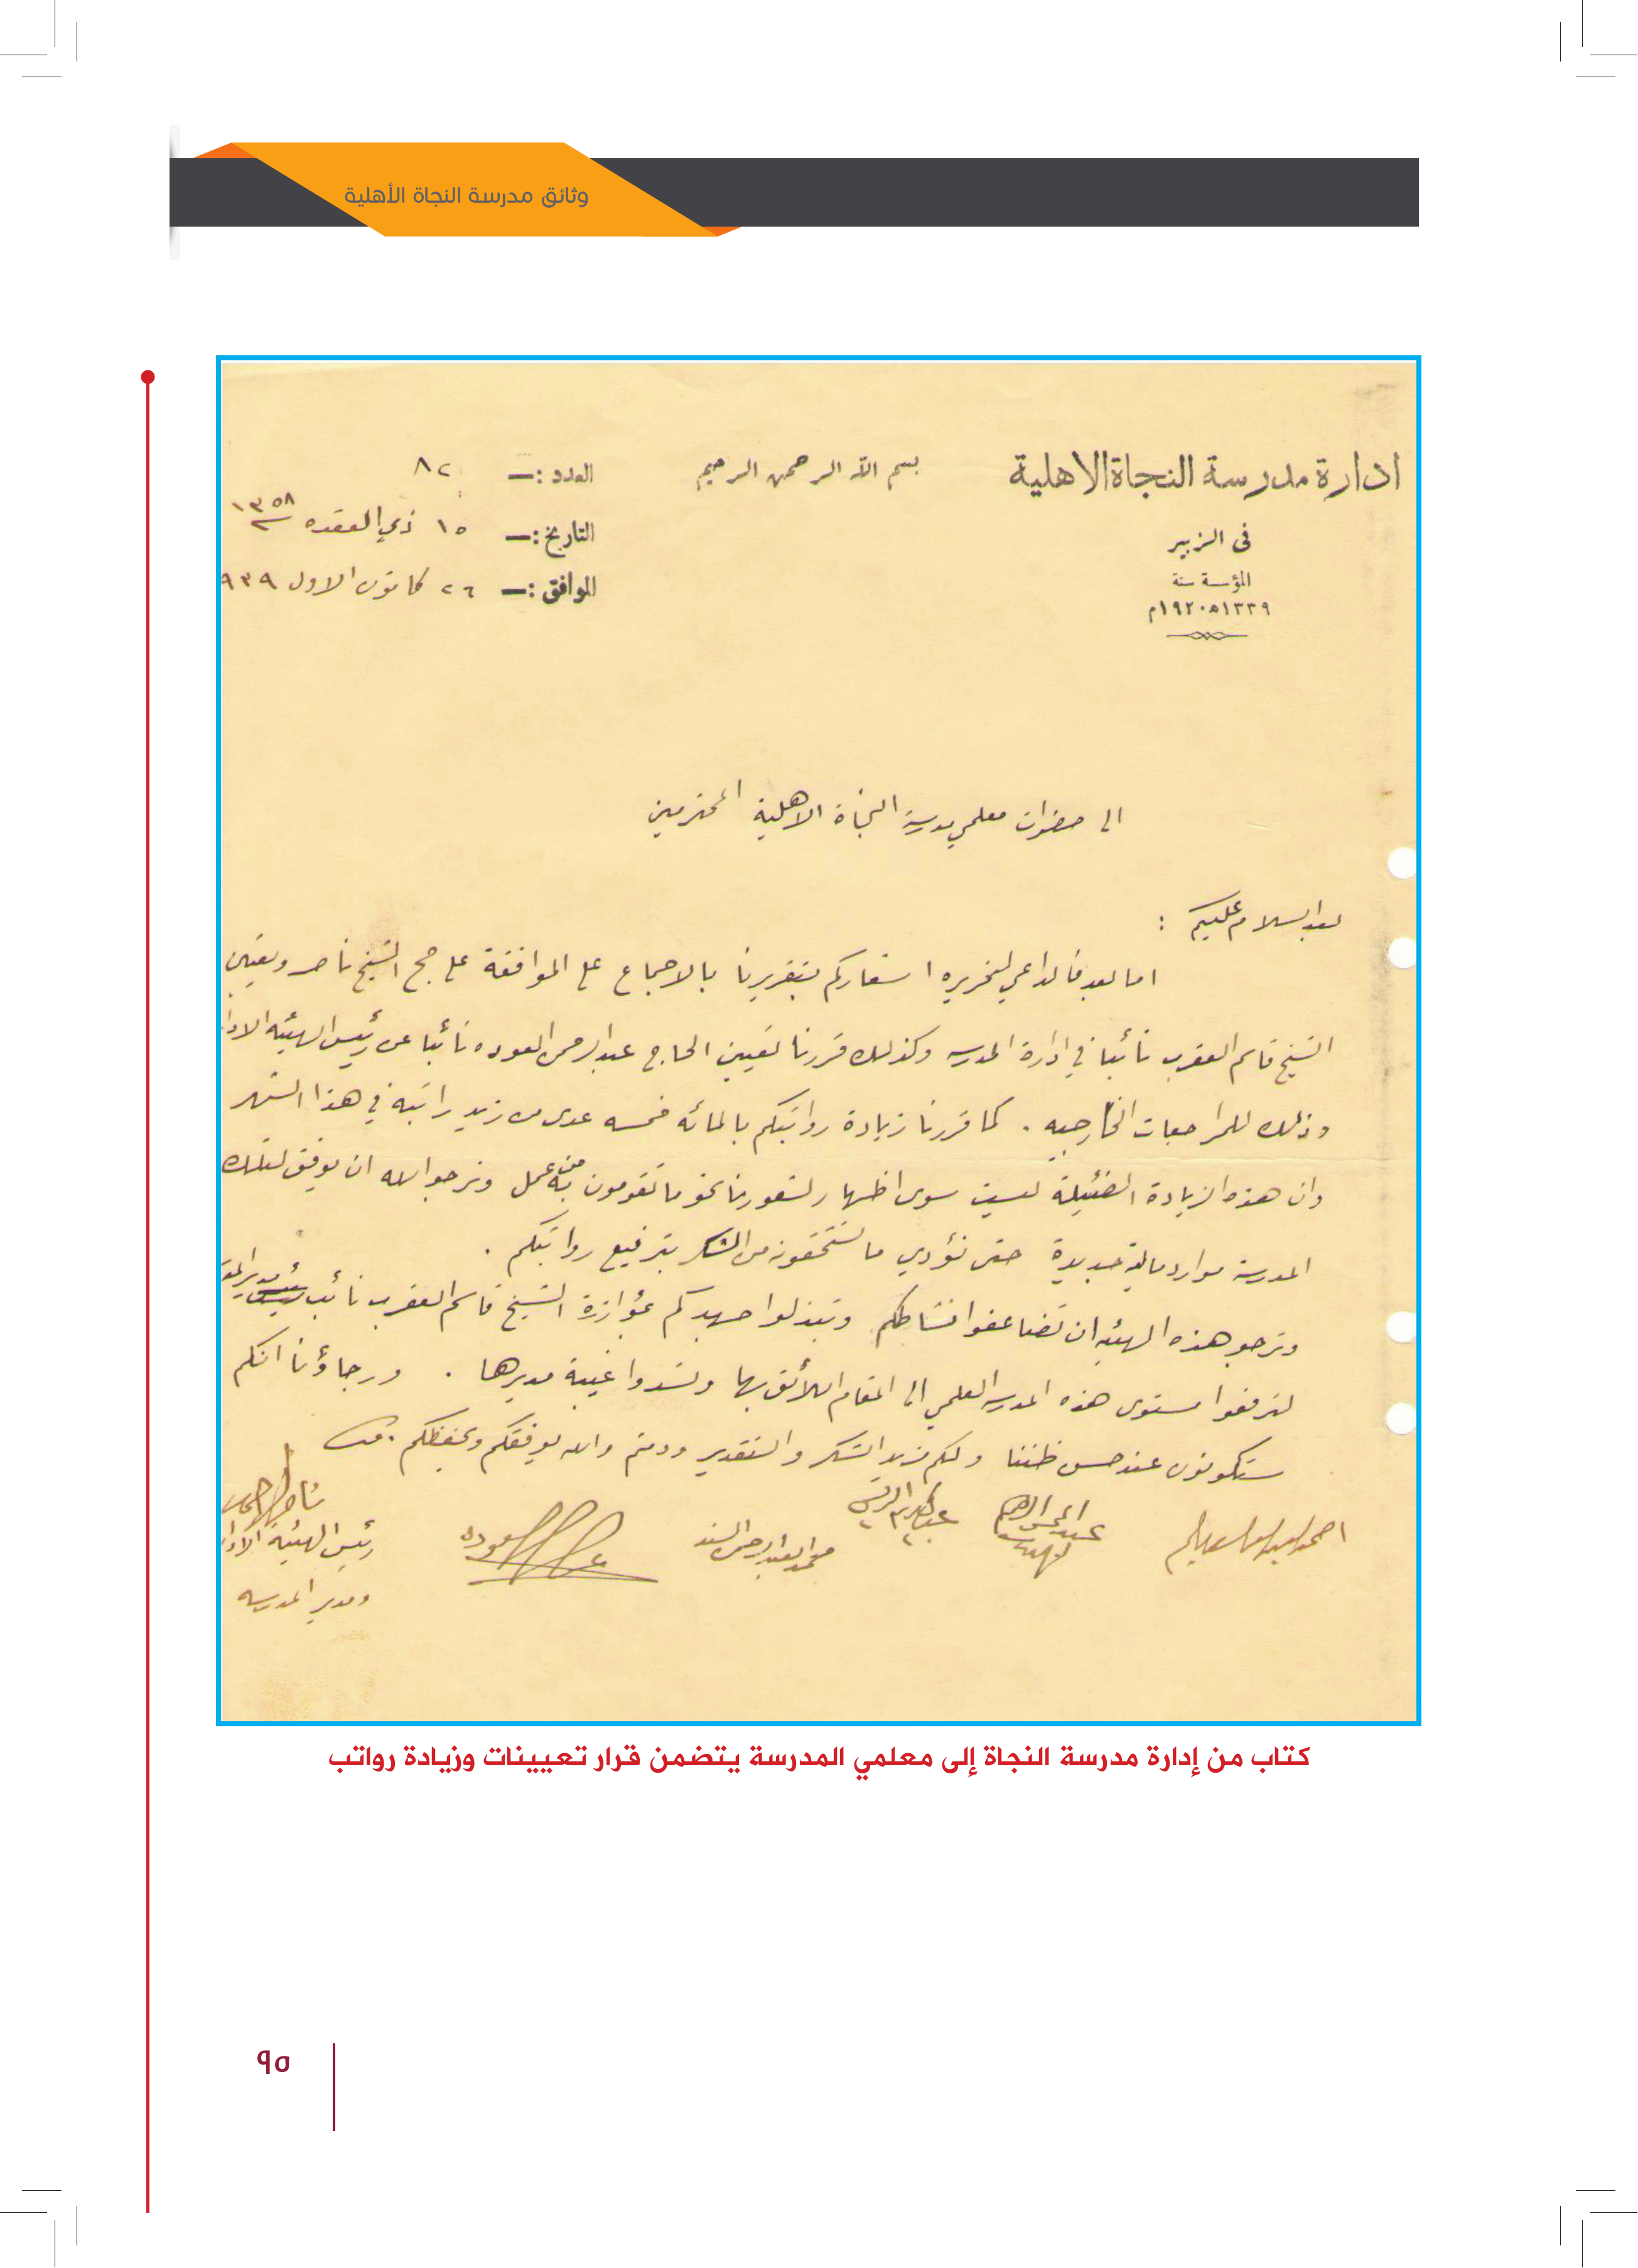 وثائق مدرسة النجاة الأهلية
ادارة مدرسة النجاة الاهلية
فى الزبير
المؤسسة سنة
١٣٣٩ھ ١٩٢٠م
بسم الله الرحمن الرحيم
العدد :— ٨٢
التاريخ :— ١٥ ذي القعده ١٣٥٨
الموافق :— ٢٦ كانون الاول ٩٣٩
الى حضرات معلمي مدرسة النجاة الاهلية المحترمين
بعد السلام عليكم :
اما بعد فالداعي لتحريره اشعاركم بتقريرنا بالاجماع على الموافقة على حج الشيخ ناصر وتعيين
الشيخ قاسم العقرب نائبا في ادارة المدرسه وكذلك قررنا تعيين الحاج عبدالرحمن العوده نائبا عن رئيس الهيئه
وذلك للمراجعات الخارجيه . كما قررنا زيادة رواتبكم بالمائه خمسه عدى من زيد راتبه في هذا الشهر
وان هذه الزيادة الضئيلة ليست سوى اظهار لشعورنا نحو ما تقومون به من عمل ونرجو الله ان يوفق لتلك
المدرسة موارد مالية جديدة حتى نؤدي ما تستحقونه من الشكر بترفيع رواتبكم .
ونرجو هذه الهيئه ان تضاعفوا نشاطكم وتبذلوا جهدكم بمؤازرة الشيخ قاسم العقرب نائب مدير
لترفعوا مستوى هذه المدرسه العلمي الى المقام اللائق بها وتسدوا غيبة مديرها . ورجاؤنا انكم
ستكونون عند حسن ظننا ولكم مزيد الشكر والتقدير ودمتم والله يوفقكم ويحفظكم .
محمد العبدالرحمن السند
العوده
رئيس الهيئة
ومدير المدرسه
كتاب من إدارة مدرسة النجاة إلى معلمي المدرسة يتضمن قرار تعيينات وزيادة رواتب
٩٥